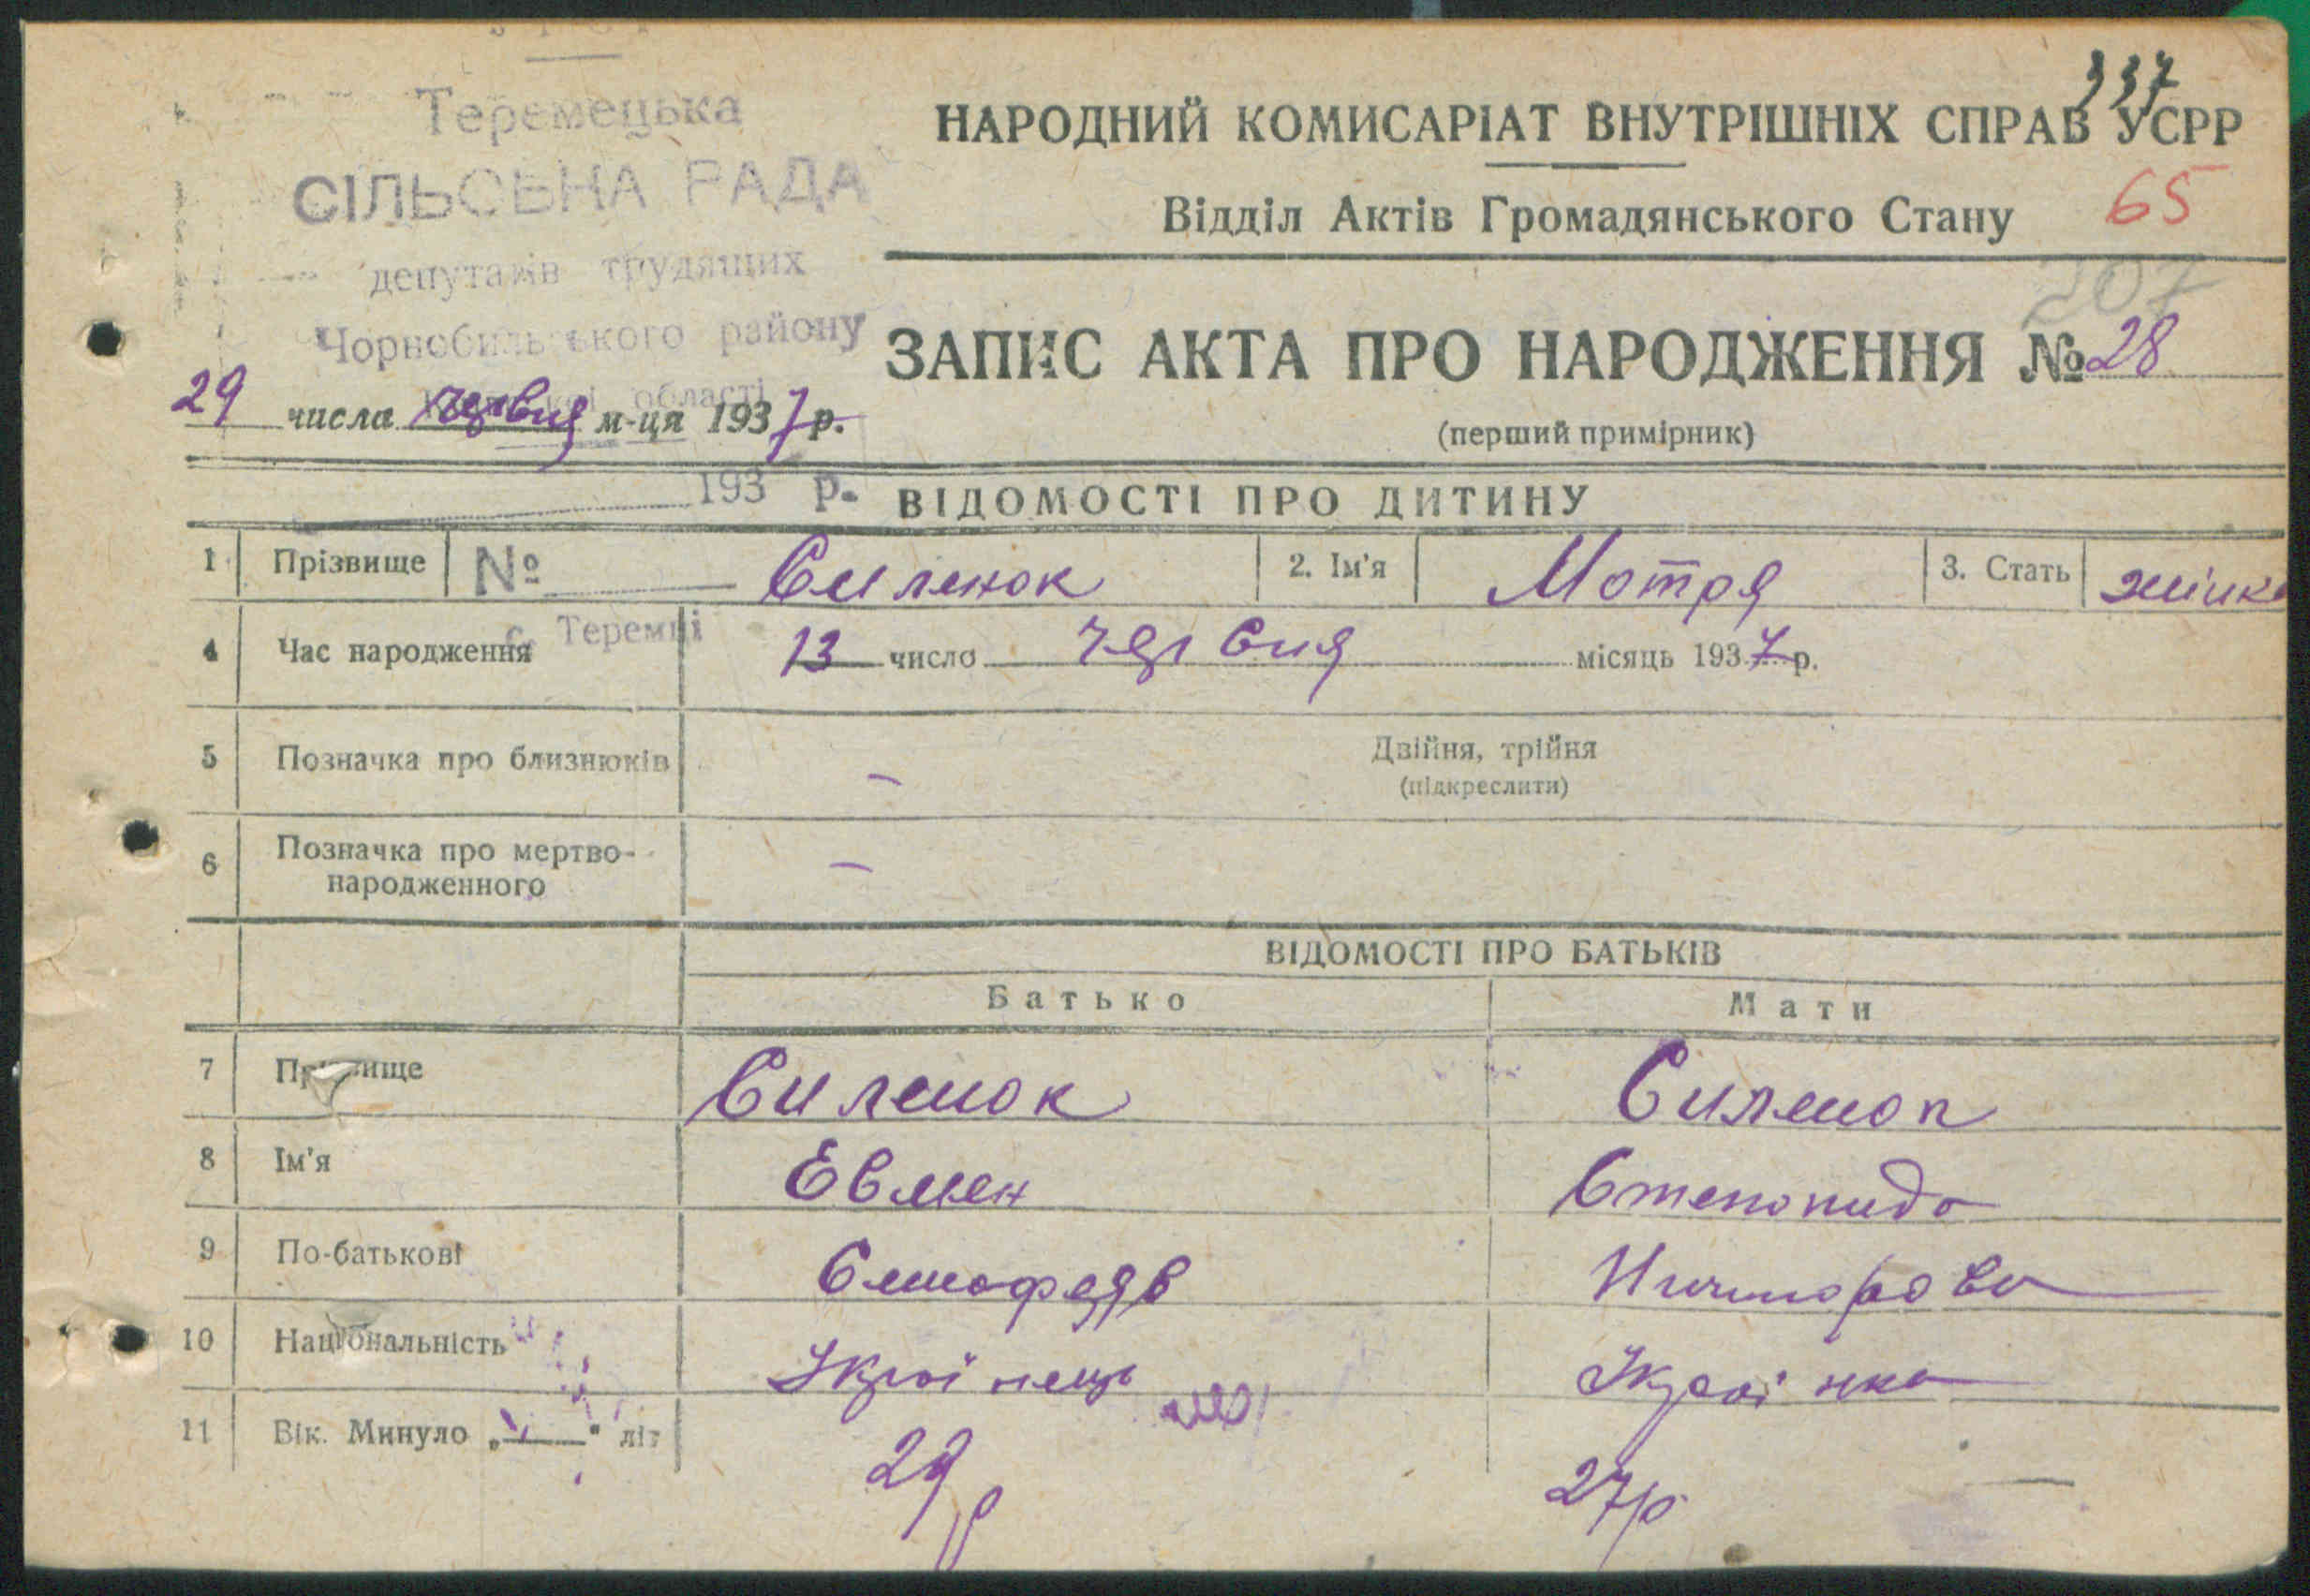 Теремецька
СІЛЬСЬКА РАДА
депутатів трудящих
Чорнобильського району
області
29 числа червня м-ця 1937 р.
193 р.
№
с. Теремці
337
НАРОДНИЙ КОМИСАРІАТ ВНУТРІШНІХ СПРАВ УСРР
Відділ Актів Громадянського Стану
65
207
ЗАПИС АКТА ПРО НАРОДЖЕННЯ № 28
(перший примірник)
ВІДОМОСТІ ПРО ДИТИНУ
1 Прізвище Силенок 2. Ім'я Мотря 3. Стать жінка
4 Час народження 13 число червня місяць 1937 р.
5 Позначка про близнюків – Двійня, трійня
(підкреслити)
6 Позначка про мертво-
народженного –
ВІДОМОСТІ ПРО БАТЬКІВ
Батько Мати
7 Прізвище Силенок Силенок
8 Ім'я Евмен Степонида
9 По-батькові
10 Національність Українець Українка
11 Вік. Минуло „ " літ 29 р 27 р